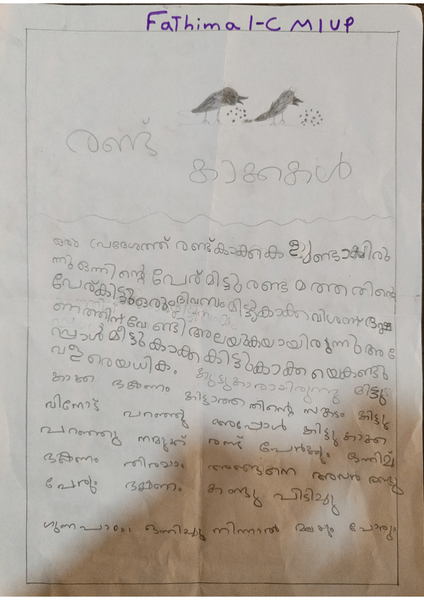 Fathima 1-C M I UP
രണ്ട്
കാക്കകൾ
ഒരു പ്രദേശത്ത് രണ്ട് കാക്കകളുണ്ടായിരു
ന്നു ഒന്നിന്റെ പേര് മിട്ടു രണ്ടാമത്തതിന്റെ
പേര് കിട്ടു ഒരു ദിവസം മിട്ടുകാക്ക വിശന്ന് ഭക്ഷ
ണത്തിന് വേണ്ടി അലയുകയായിരുന്നു അ
പ്പോൾ മിട്ടുകാക്ക കിട്ടുകാക്കയെ കണ്ടു
വളരെയധികം കൂട്ടുകാരായിരുന്നു മിട്ടു
കാക്ക ഭക്ഷണം കിട്ടാത്തതിന്റെ സങ്കടം കിട്ടു
വിനോട് പറഞ്ഞു അപ്പോൾ കിട്ടുകാക്ക
പറഞ്ഞു നമുക്ക് രണ്ട് പേർക്കും ഒന്നിച്ച്
ഭക്ഷണം തിരയാം അങ്ങനെ അവർ രണ്ടു
പേരും ഭക്ഷണം കണ്ടു പിടിച്ചു
ഗുണപാഠം: ഒന്നിച്ചു നിന്നാൽ മലയും പോരും